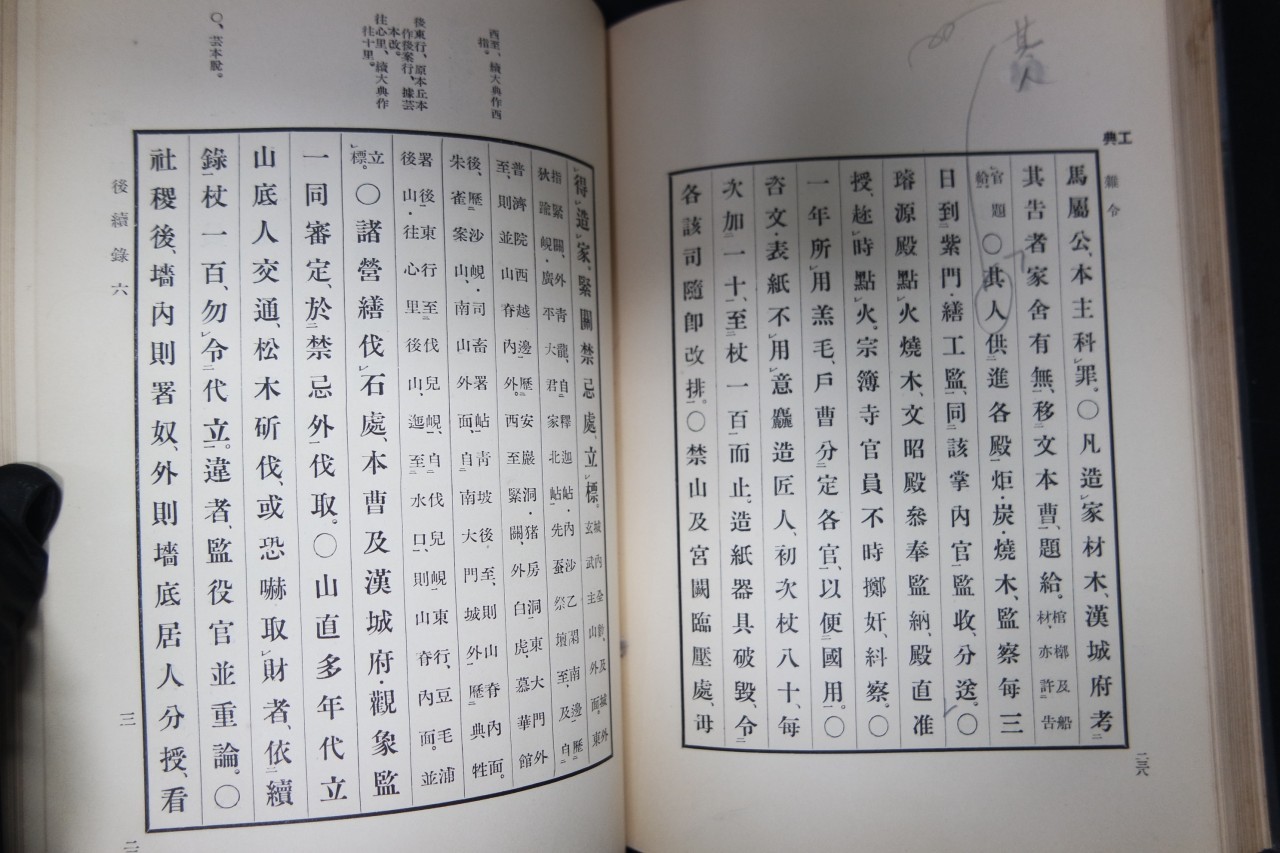 工典
雜令
馬屬公、本主科罪。〇凡造家材木、漢城府考
其告者家舍有無、移文本曹、題給。棺槨及船材、亦許告
官題給。〇其人供進各殿炬·炭·燒木、監察每三
日到紫門·繕工監、同該掌內官監收、分送。〇
璿源殿點火燒木、文昭殿參奉監納、殿直准
授、趁時點火。宗簿寺官員不時擲奸、糾察。〇
一年所用羔毛、戶曹分定各官、以便國用。〇
咨文·表紙不用意麤造匠人、初次杖八十、每
次加一十、至杖一百而止。造紙器具破毀、令
各該司隨卽改排。〇禁山及宮闕臨壓處、毋
二三八
其人
西至、續大典作西指。
後東行、原本丘本作後案行、據芸本改。
往心里、續大典作往十里。
〇、芸本脫。
得造家、緊關禁忌處、立標。城內全、及城外玄武主山、外面。東
指緊關、外青龍、自釋迦岾·內沙乙閑南邊歷狄踰峴·廣平大君家北岾·先蚕祭壇、至及自
普濟院西越邊歷安巖洞·猪房洞東大門外至、則並山脊內外。西至緊關、外白虎、慕華館
後、歷沙峴·司畜署岾青坡後至、則山脊內面。朱雀案山、南山外面、自南大門城外歷典牲
署後東行至伐兒峴、自伐兒峴東行、豆毛浦後山·往心里後山、迤至水口、則山脊內面。並
立標。〇諸營繕伐石處、本曹及漢城府·觀象監
一同審定、於禁忌外伐取。〇山直多年代立
山底人交通、松木斫伐、或恐嚇取財者、依續
錄杖一百、勿令代立。違者、監役官並重論。〇
社稷後、墻內則署奴、外則墻底居人分授、看
後續錄 六
三